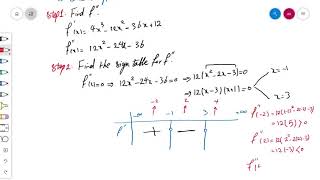 Step1. Find f''
f'(x)= 4x³-12x²-36x+12
f''(x)= 12x²-24x-36
Step2: Find the sign table for f''
f''(x)=0 ⇒ 12x²-24x-36=0 ⇒ 12[x²-2x-3]=0
x=-1
⇒ 12(x-3)(x+1)=0
x=3
-2 2 4
-∞ -1 3 +∞
f'' + -
f''(-2)=12((-2)²-2(-2)-3)
=12(5)>0
f''(2)=12(2²-2(2)-3)
=12(-3)<0
f''(